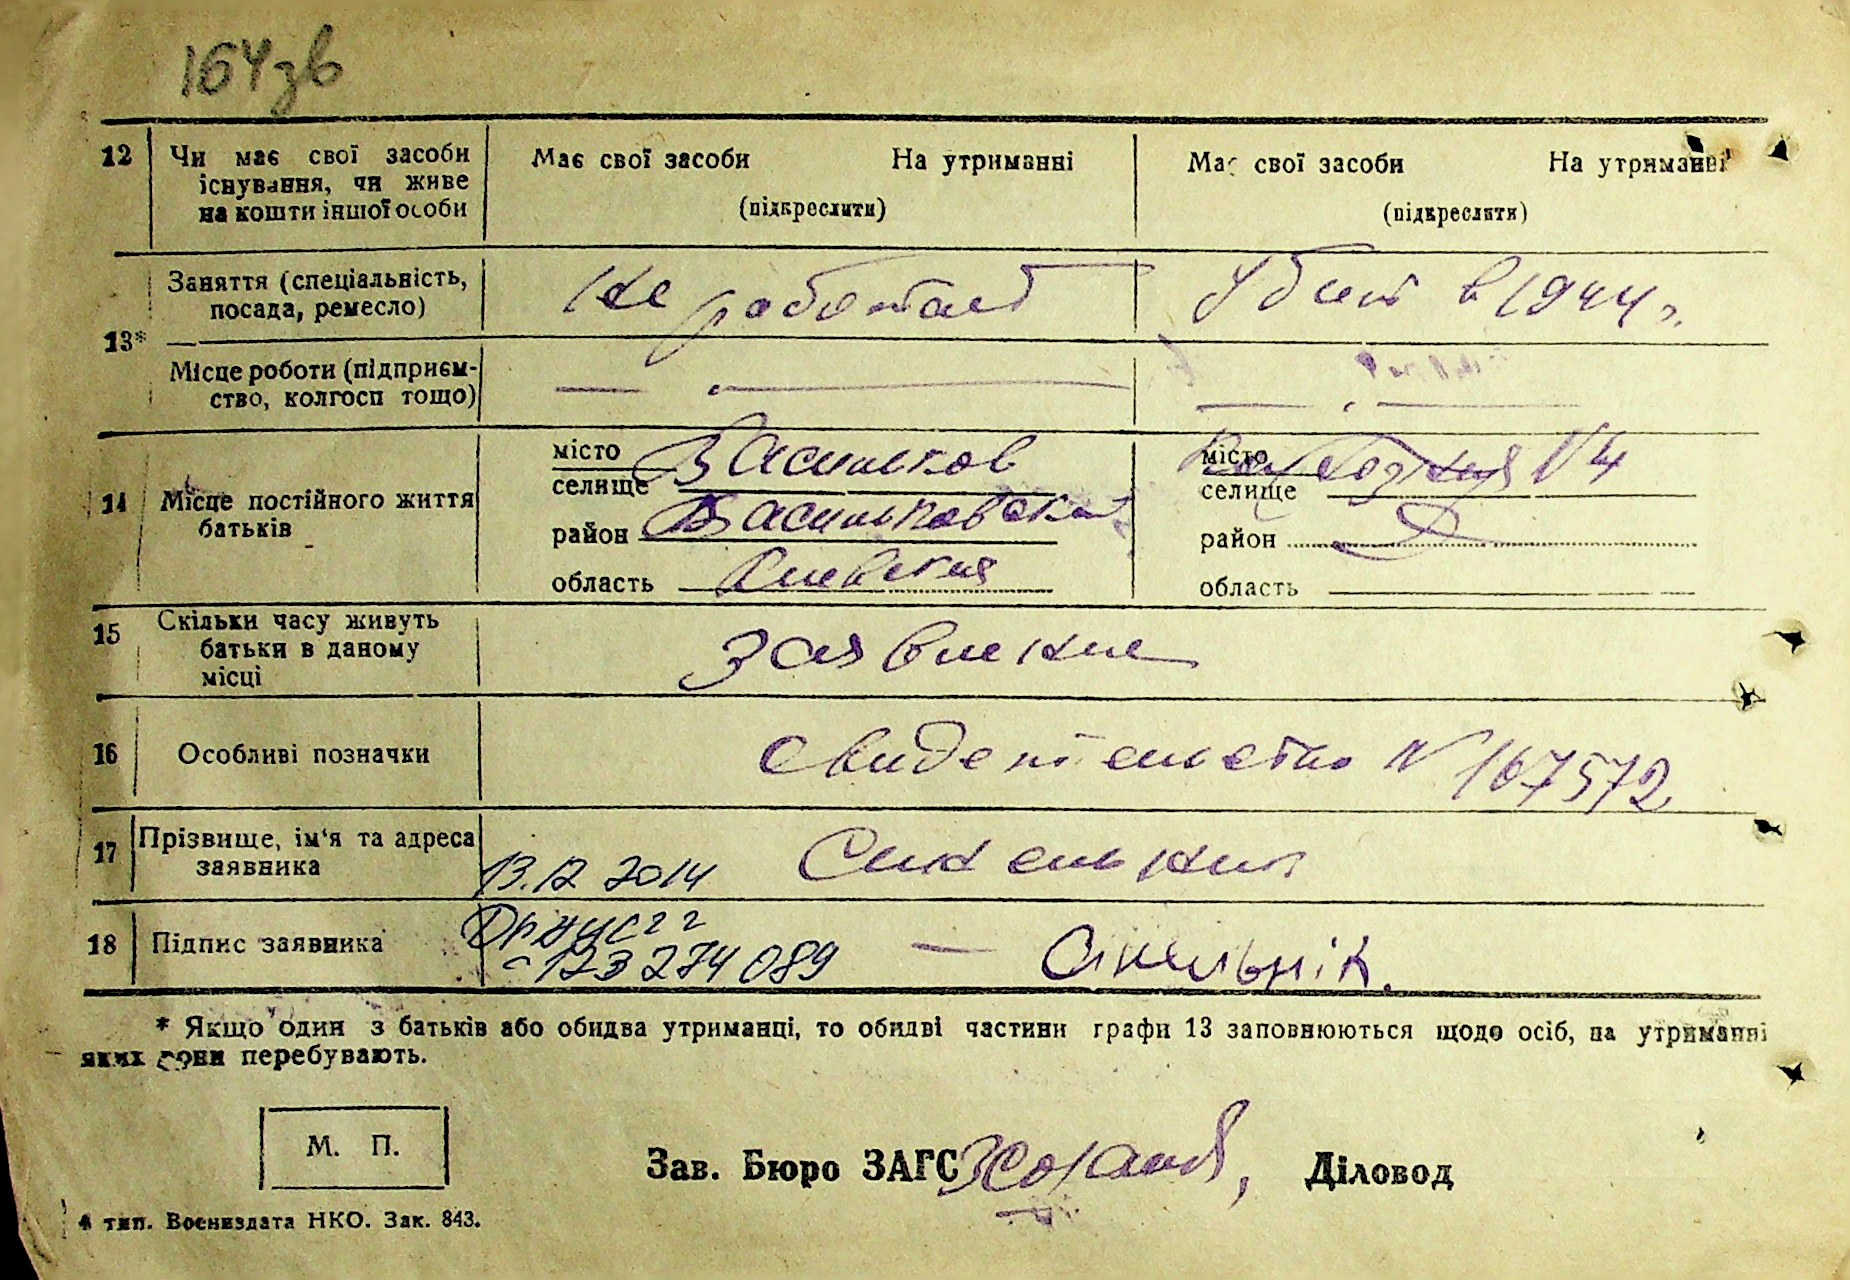 164 зв
12 Чи має свої засоби існування, чи живе на кошти іншої особи
Має свої засоби На утриманні
(підкреслити)
Має свої засоби На утриманні
(підкреслити)
13*
Заняття (спеціальність, посада, ремесло)
Не работает
Убит в 1944 г.
Місце роботи (підприємство, колгосп тощо)
14 Місце постійного життя батьків
місто Васильков
селище
район Васильковский
область Киевская
місто
селище
№ 4
район
область
15 Скільки часу живуть батьки в даному місці
заявление
16 Особливі позначки
Свидетельство № 167572
17 Прізвище, ім'я та адреса заявника
13.12 2014
Синельник
18 Підпис заявника
123 274 089
— Синельнік.
* Якщо один з батьків або обидва утриманці, то обидві частини графи 13 заповнюються щодо осіб, на утриманні
яких вони перебувають.
М. П.
Зав. Бюро ЗАГС
Діловод
4 тип. Воениздата НКО. Зак. 843.